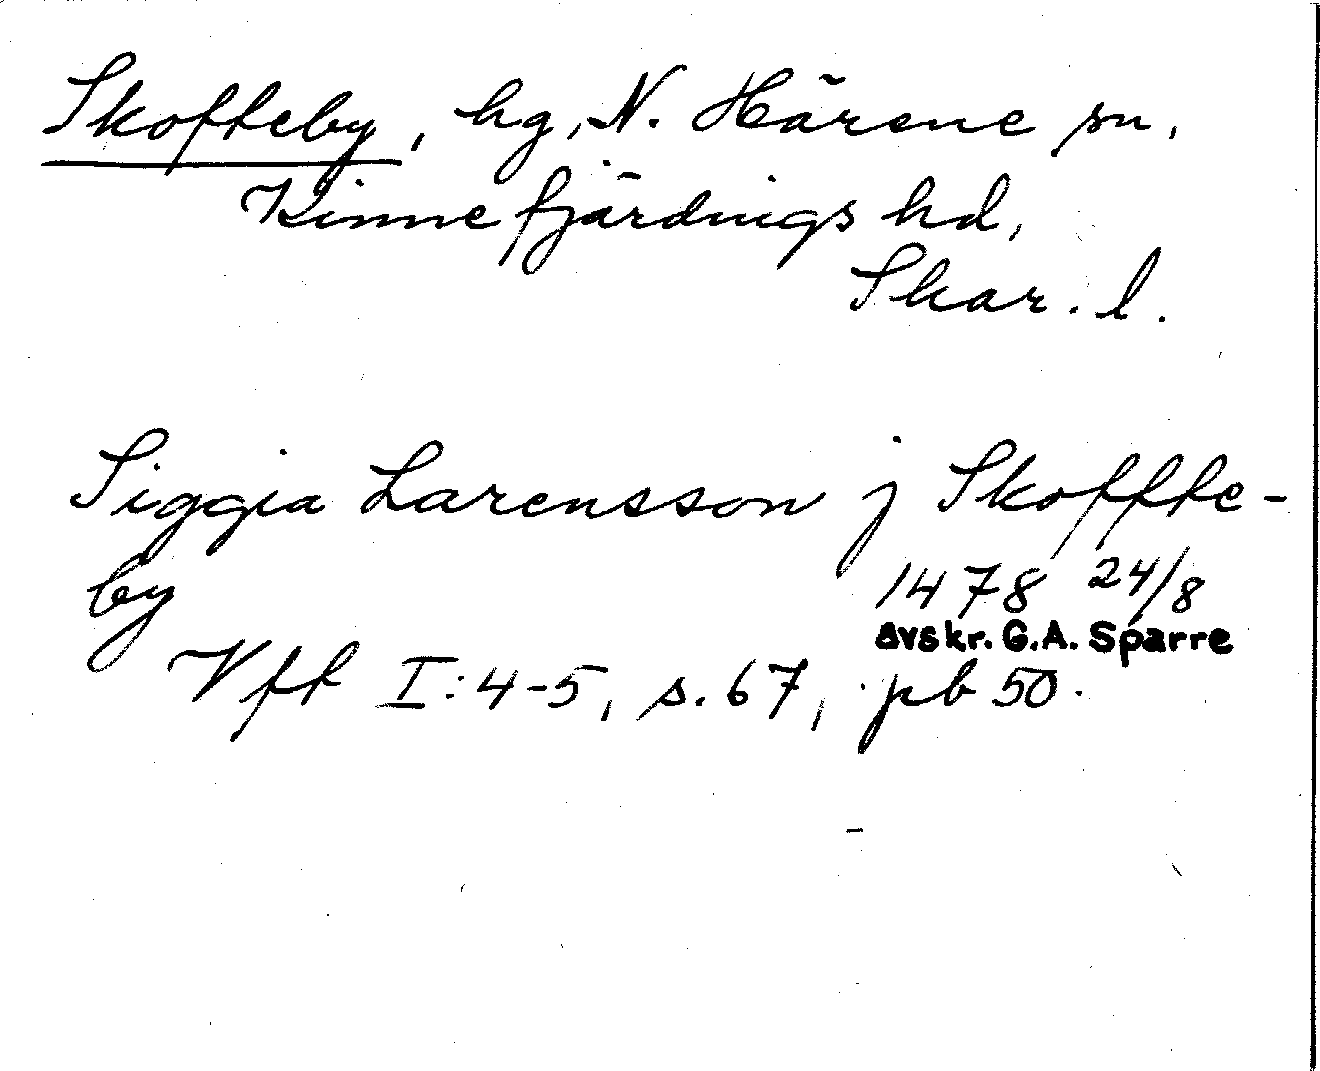 Skofteby, hg, N. Härene sn,
Kinnefjärdings hd,
Skar. l.
Siggia Larensson j Skoffte-
by
1478 24/8
avskr. G.A. Sparre
Vft I:4-5, s. 67, pb 50.